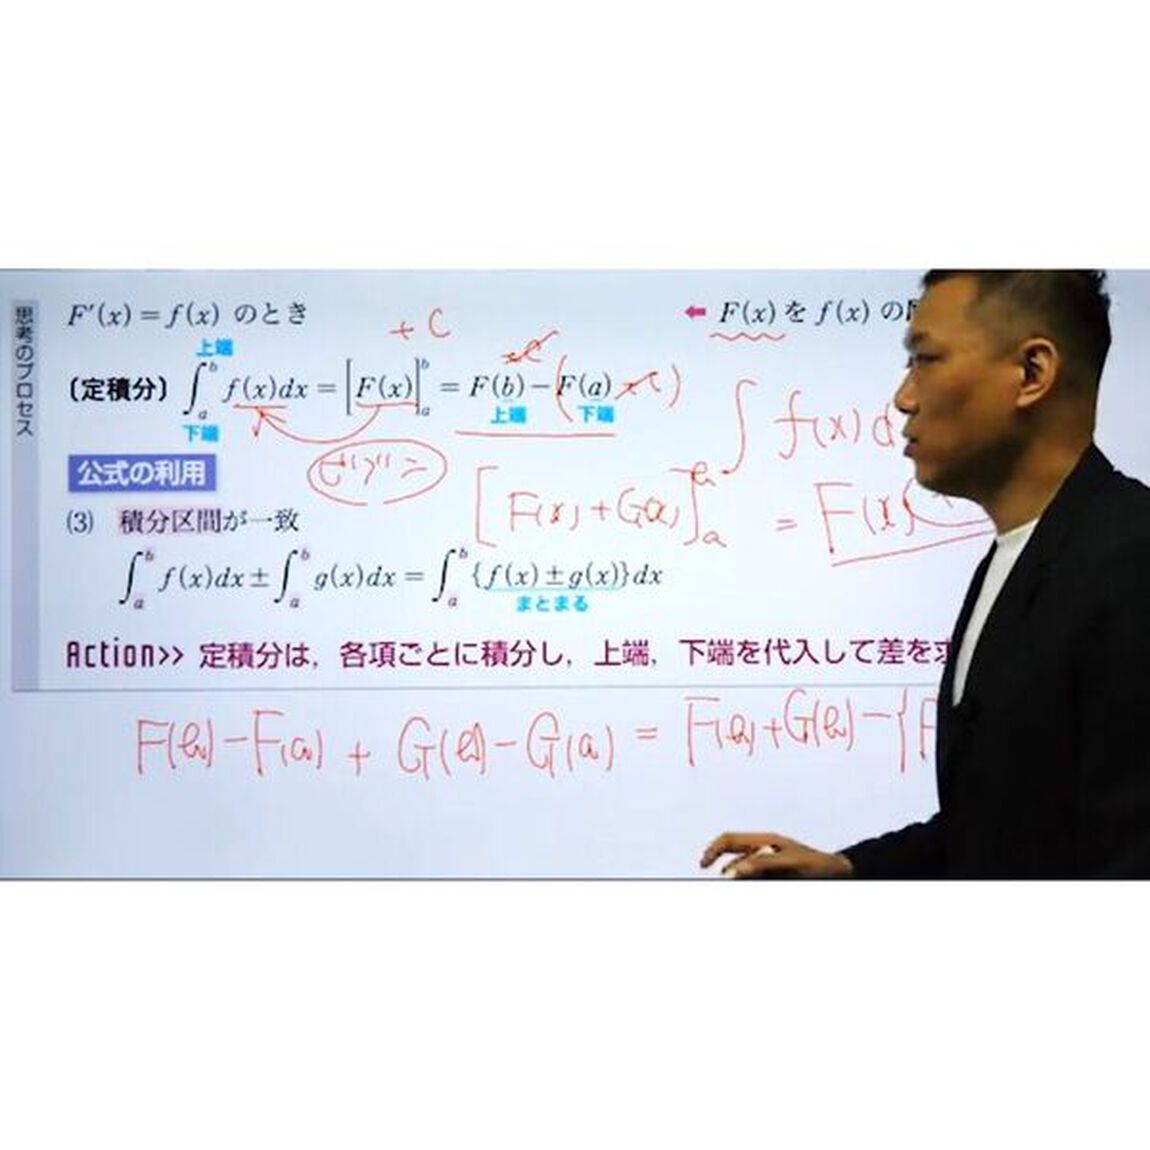 思考のプロセス
F′(x) = f(x) のとき
← F(x) を f(x) の
+ C
上端
〔定積分〕 ∫_a^b f(x)dx = [F(x)]_a^b = F(b) − (F(a) + C)
下端 上端 下端
∫ f(x) d
公式の利用
[F(x) + G(x)]_a^b = F(x)
(3) 積分区間が一致
∫_a^b f(x)dx ± ∫_a^b g(x)dx = ∫_a^b {f(x) ± g(x)}dx
まとまる
Action>> 定積分は，各項ごとに積分し，上端，下端を代入して差を求
F(b) − F(a) + G(b) − G(a) = F(b) + G(b) − {F